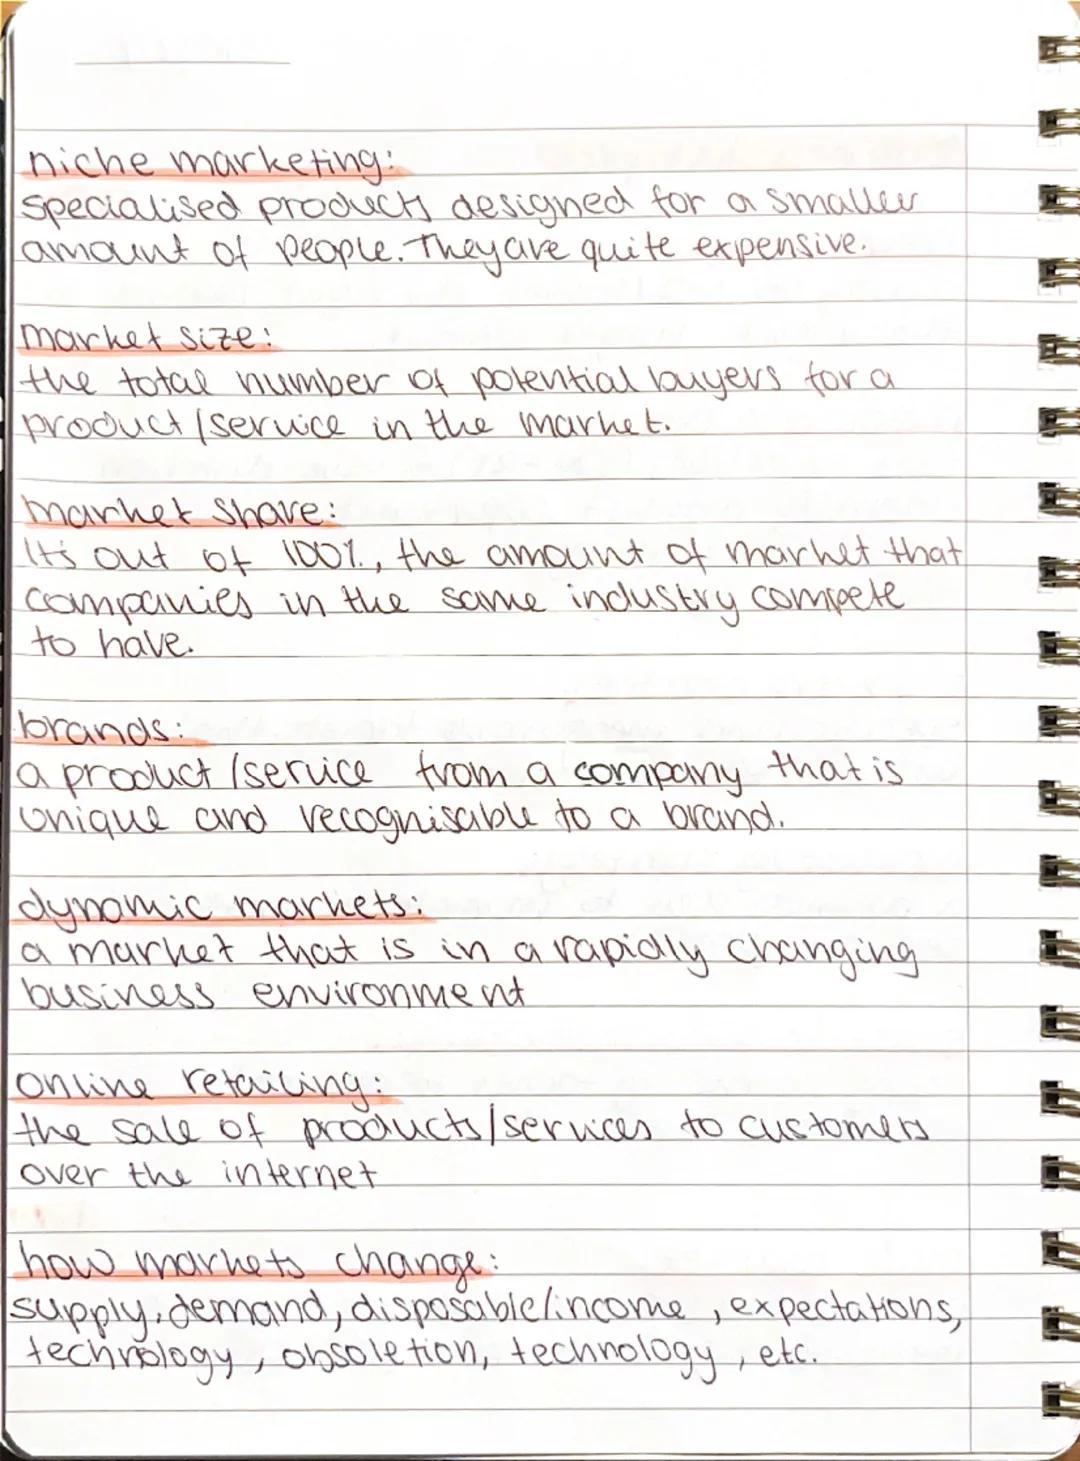 niche marketing:
specialised products designed for a smaller
amount of people. They are quite expensive.
market size:
the total number of potential buyers for a
product/service in the market.
market share:
It's out of 100%, the amount of market that
companies in the same industry compete
to have.
brands:
a product/service from a company that is
unique and recognisable to a brand.
dynamic markets:
a market that is in a rapidly changing
business environment
online retailing:
the sale of products/services to customers
over the internet
how markets change:
supply, demand, disposable/income, expectations,
technology, obsoletion, technology, etc.